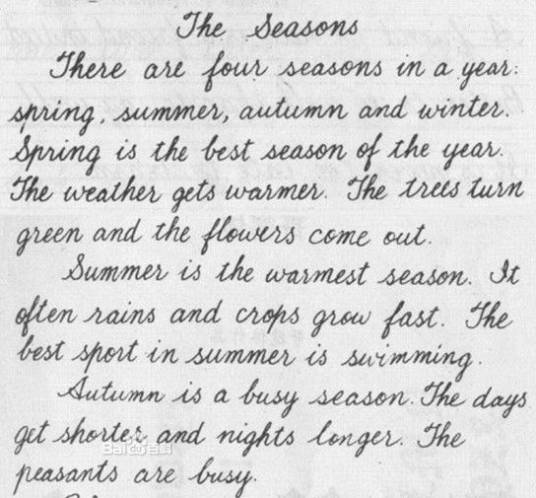 The Seasons
There are four seasons in a year:
spring, summer, autumn and winter.
Spring is the best season of the year.
The weather gets warmer. The trees turn
green and the flowers come out.
Summer is the warmest season. It
often rains and crops grow fast. The
best sport in summer is swimming.
Autumn is a busy season. The days
get shorter and nights longer. The
peasants are busy.